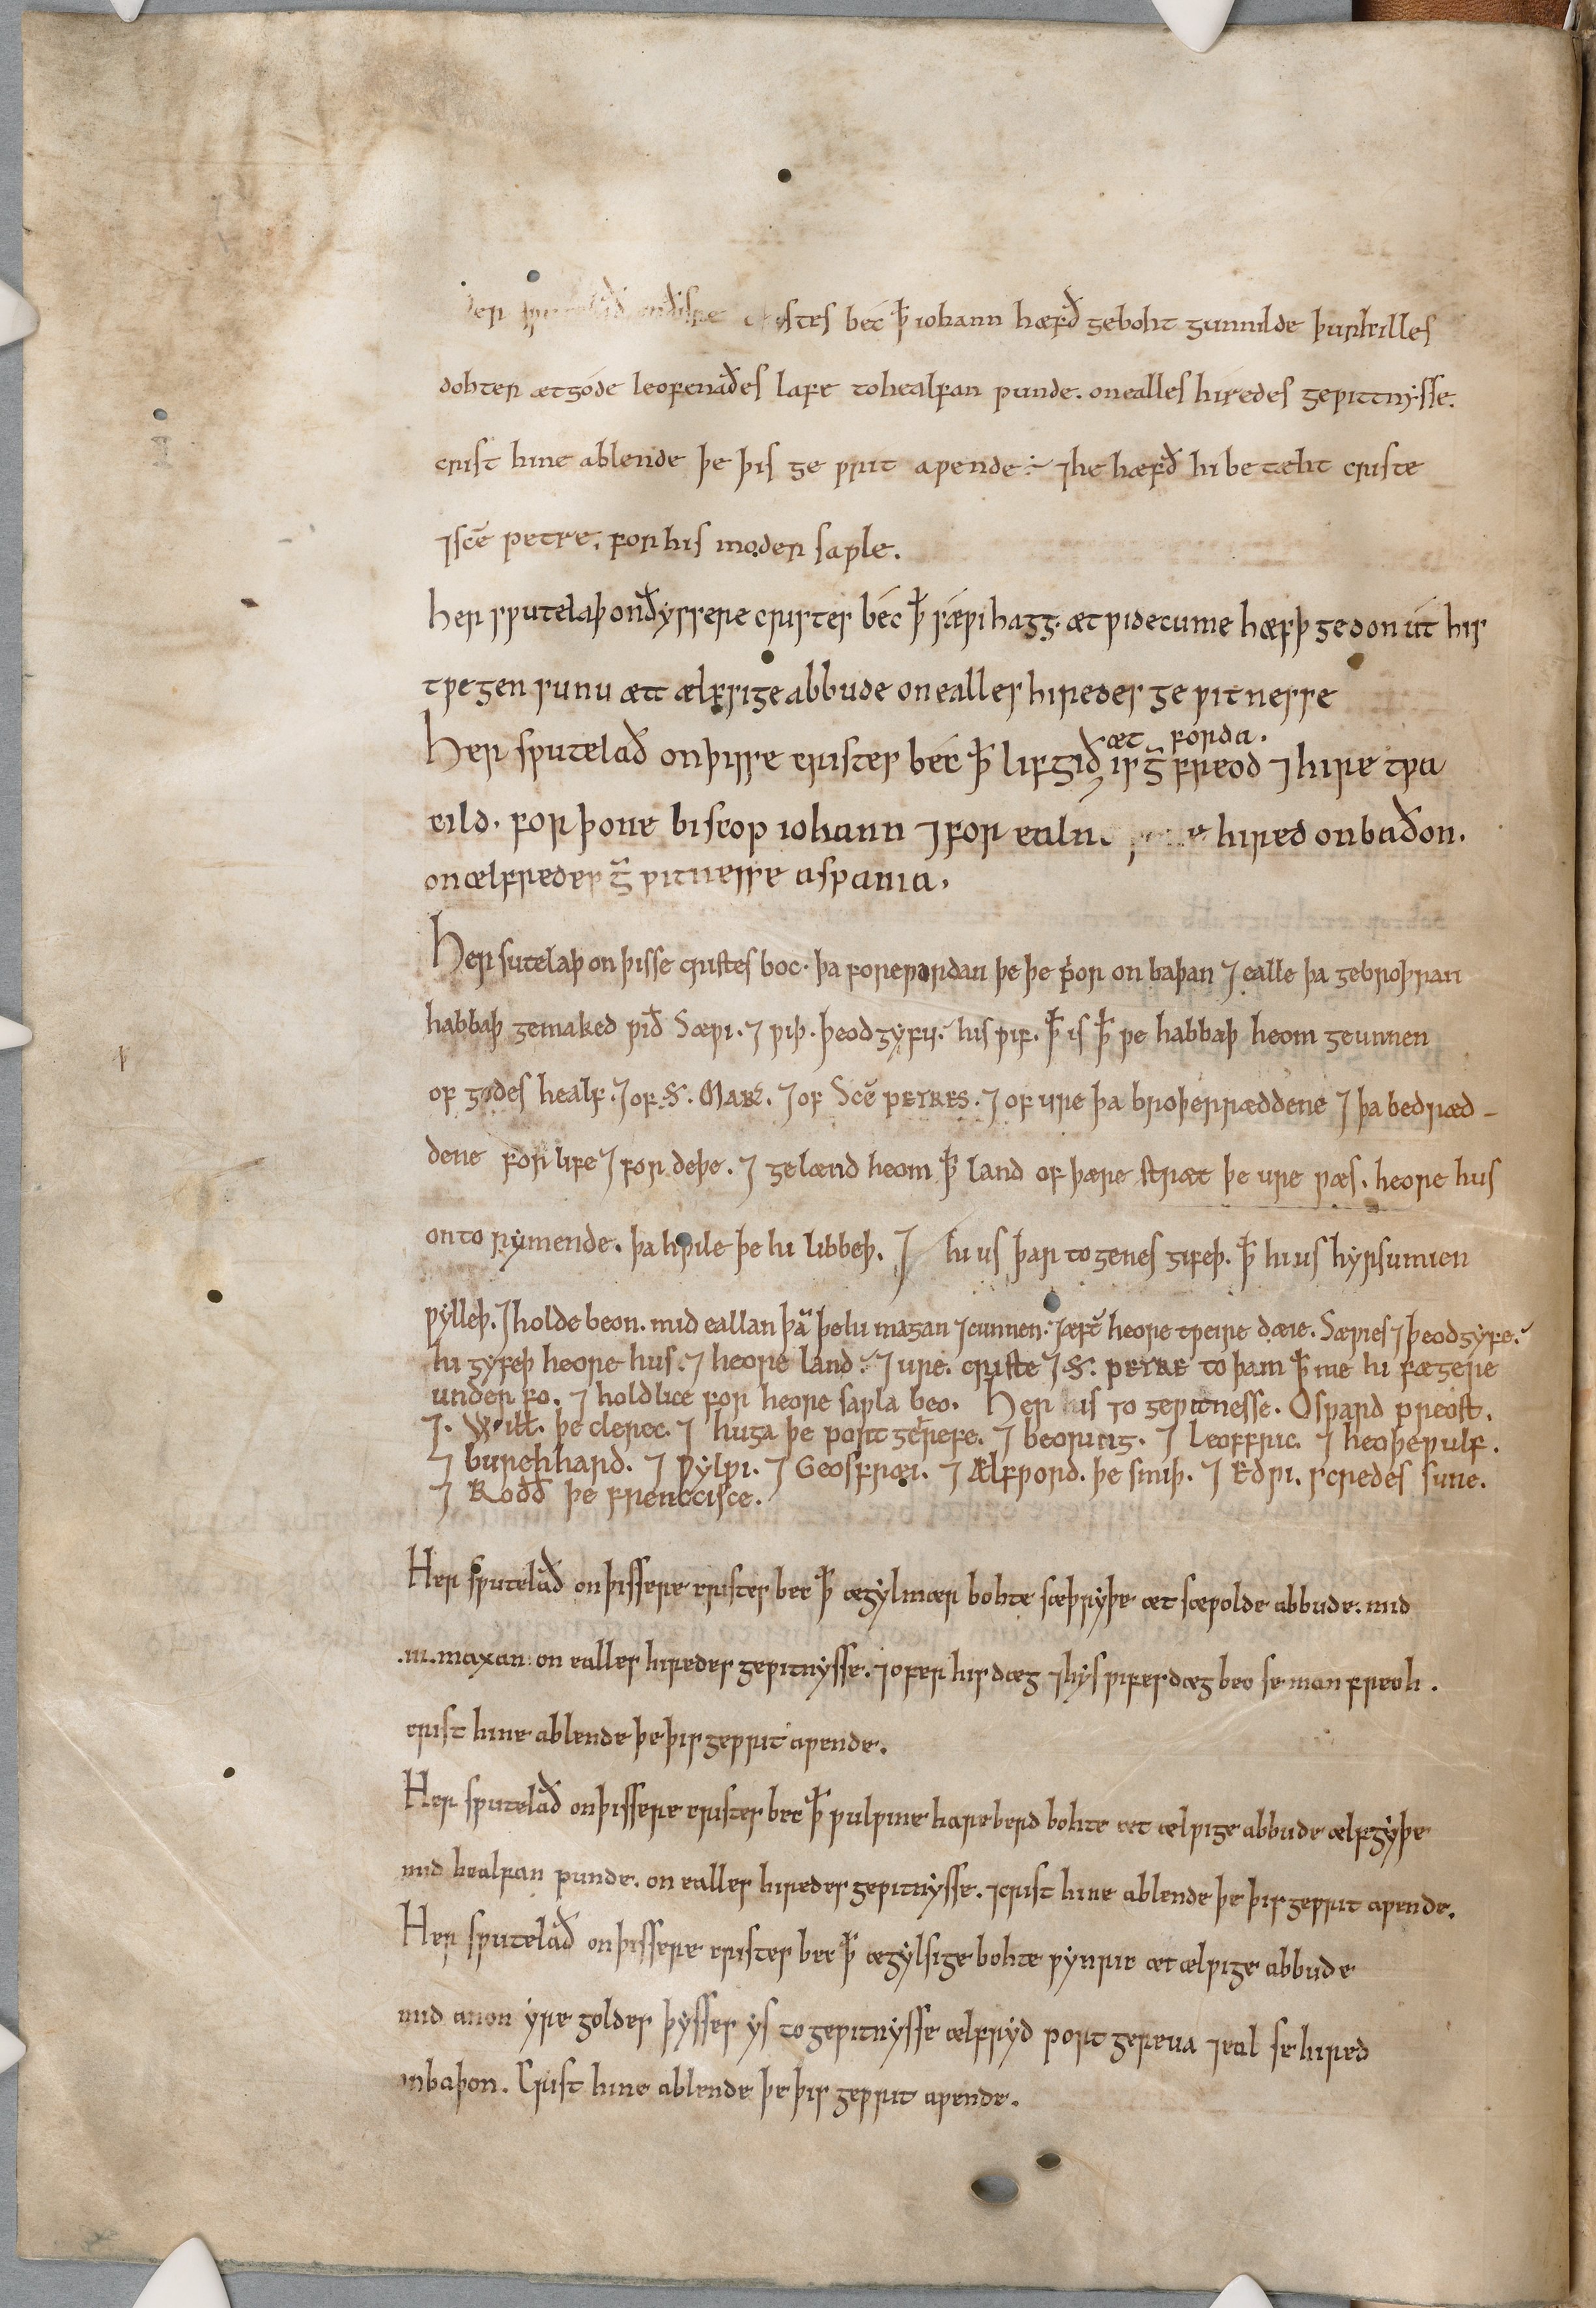 Her onðisre cristes béc ꝥ iohann hæfð geboht gunnilde þurkilles
dohter ætgóde leofenaðes lafe tohealfan punde. onealles hiredes gewittnysse.
crist hine ablende þe þis ge writ awende : ⁊he hæfð hi be tæht criste
⁊scē petre, for his moder sawle.
her swutelaþ onðyssere cristes béc ꝥ sæwi hagg. æt widecume hæfþ gedon út his
twegen sunu ætt ælfsige abbude on ealles hiredes ge witnesse
Her swutelað onþisse cristes béc ꝥ lifgið æt forda. is g̃ freod ⁊ hire twa
cild. for þone biscop iohann ⁊ for ealne hired onbaðon.
on ælfredes g̃ witnesse aspania.
Her sutelaþ on þisse cristes boc. þa forewordan þe þe p̓or on baþan ⁊ ealle þa gebroþran
habbaþ gemaked wið Sæwi. ⁊ wiþ. þeodgyfu. his wif. ꝥ is ꝥ we habbaþ heom geunnen
of godes healf. ⁊ of S. Mar̃. ⁊ of Scē PETRES. ⁊ of ure þa broþerræddene ⁊ þa bedræd-
dene for life ⁊ for deþe. ⁊ gelænd heom ꝥ land of þære stræt þe ure wæs. heore hus
onto rymende. þa hwile þe hi libbeþ. ⁊ hi us þar to genes gifeþ. ꝥ hi us hyrsumien
wylleþ. ⁊ holde beon. mid eallan þā þe hi magan ⁊cunnen. ⁊æft̃ heore tweire dæie. Sæwies ⁊ þeodgyfe.
hi gyfeþ heore hus. ⁊ heore land. ⁊ ure. criste ⁊ S. PETRE to þam ꝥ me hi fægere
under fo. ⁊ holdlice for heore sawla beo. Her is to gewitnesse. Osward preost.
⁊. Will̃. þe clerec. ⁊ huga þe port gerefe. ⁊ beoring. ⁊ Leoffric. ⁊ heoþewulf.
⁊ burchhard. ⁊ Wylwi. ⁊ Geosfræi. ⁊ Ælfword. þe smiþ. ⁊ Edwi. scredes sune.
⁊ Rodð þe frenccisce.
Her swutelað onþissere cristes bec ꝥ ægylmær bohte sæþryþe æt sæwolde abbude. mid
.iii. maxan. on ealles hiredes gewitnysse. ⁊ofer his dæg ⁊hys wifes dæg beo se man freoh.
crist hine ablende þe þis gewrit awende.
Her swutelað onþissere cristes bec ꝥ wulwine hareberd bohte æt ælwige abbude ælfgyþe
mid healfan punde. on ealles hiredes gewitnysse. ⁊crist hine ablende þe þis gewrit awende.
Her swutelað onþissere cristes bec ꝥ ægylsige bohte wynric æt ælwige abbude
mid anon yre goldes þysses ys to gewitnysse ælfryd port gereua ⁊eal se hired
onbaþon. Crist hine ablende þe þis gewrit awende.